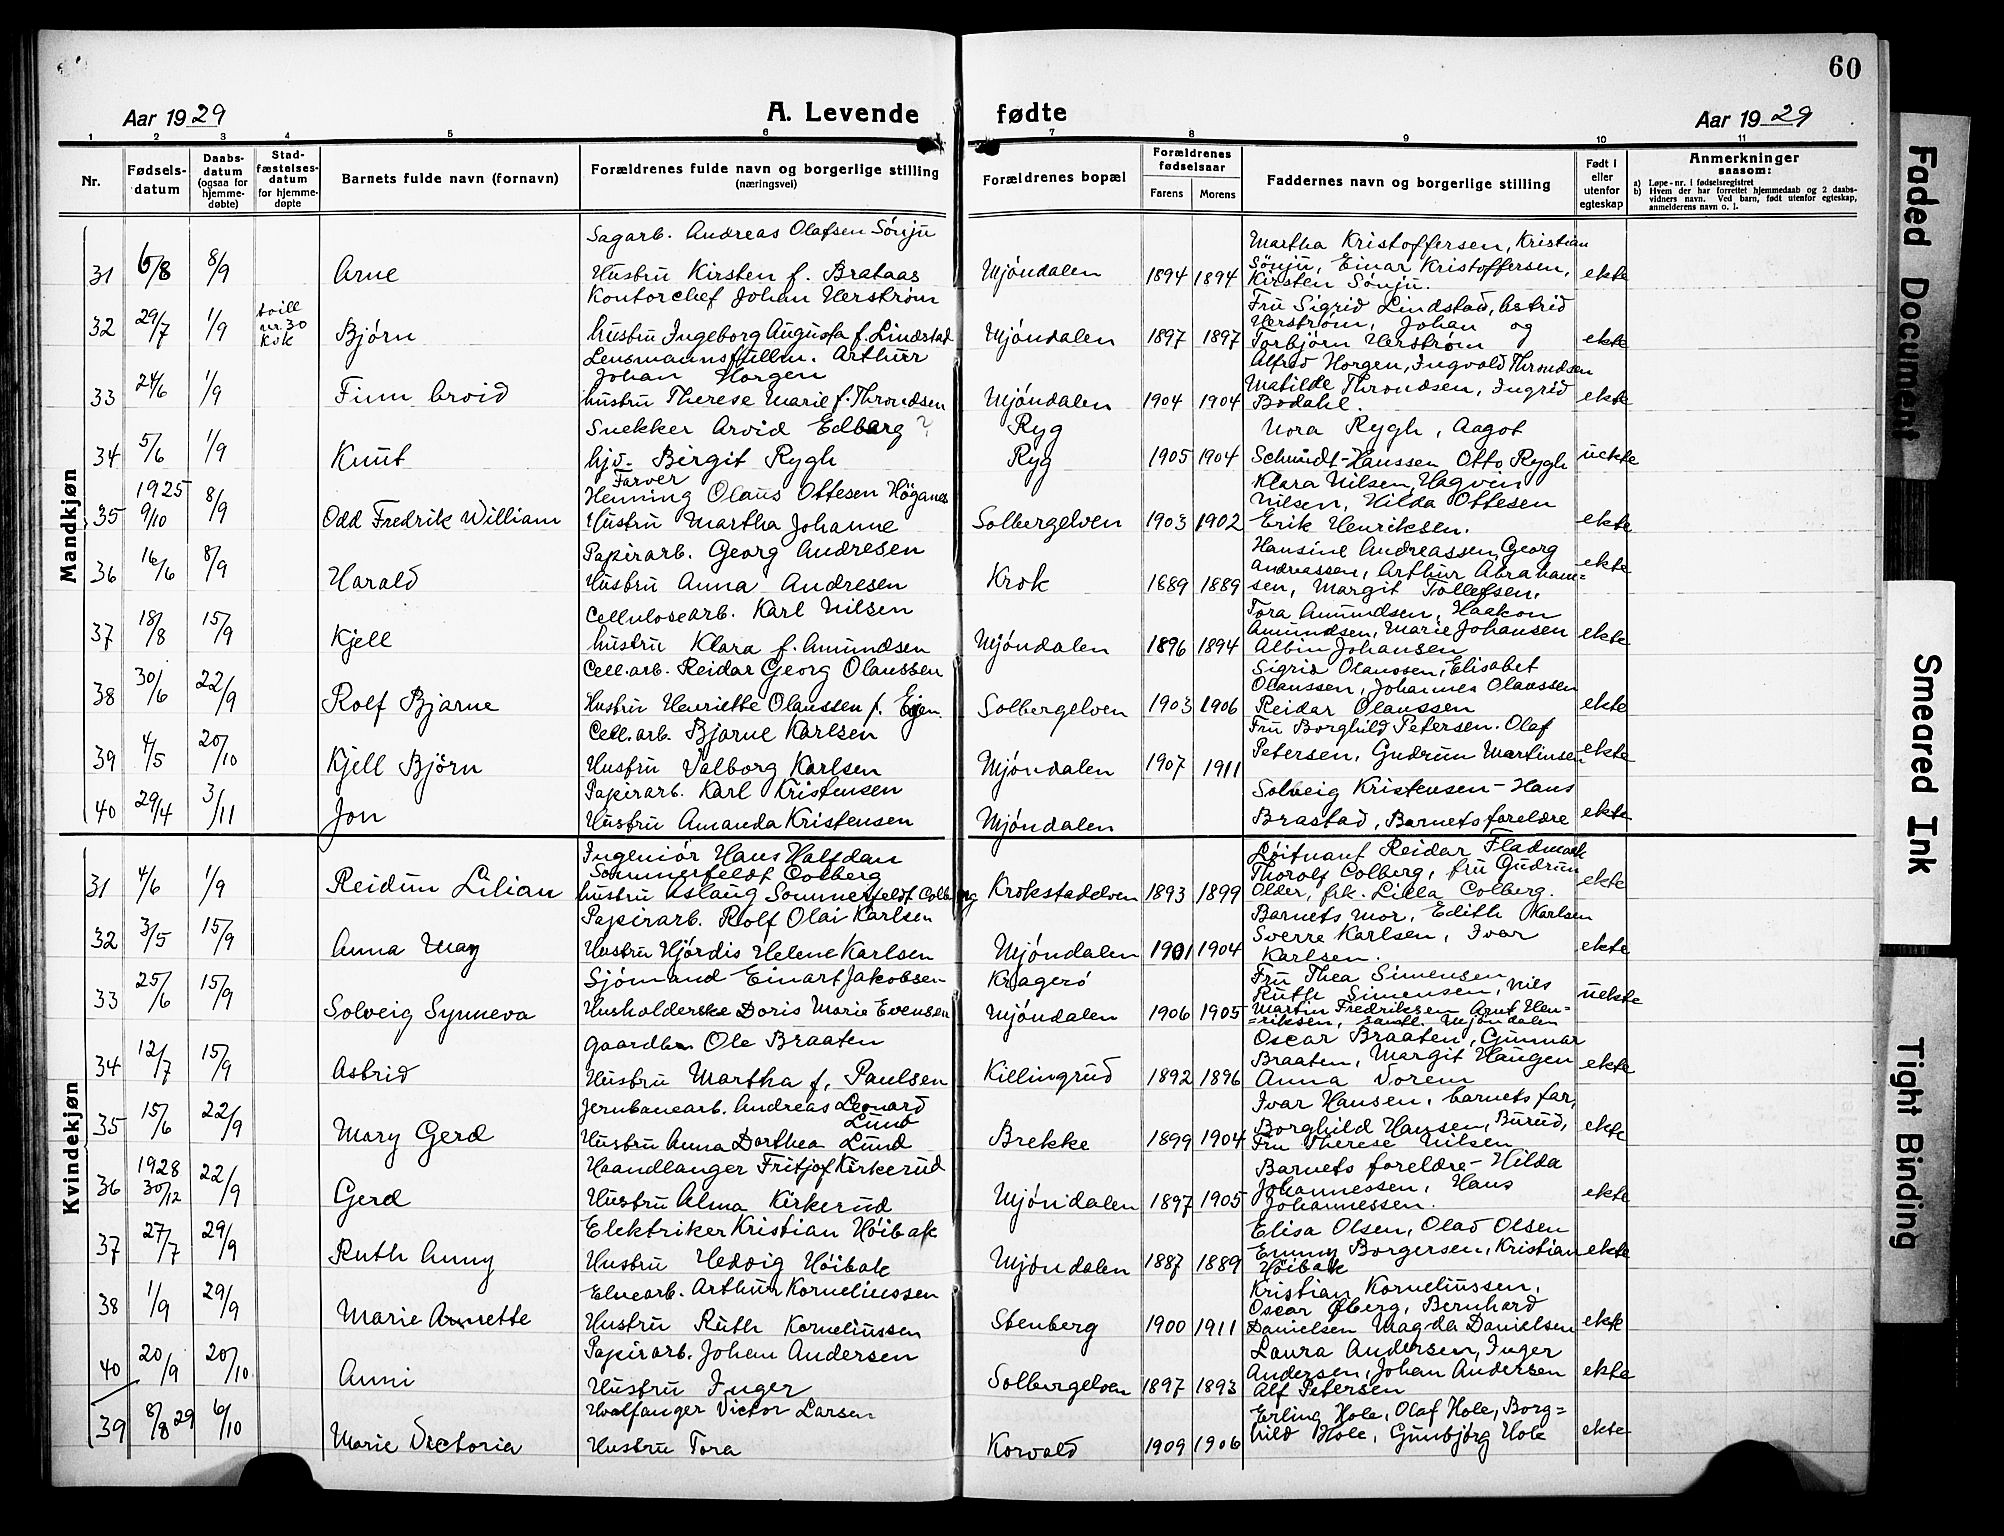 60
Aar 1929
A. Levende fødte
Aar 1929
1 2 3 4 5 6 7 8 9 10 11
Nr.
Fødsels-
datum
Daabs-
datum
(ogsaa for
hjemme-
døbte)
Stad-
fæstelses-
datum
for hjemme-
døpte
Barnets fulde navn (fornavn)
Forældrenes fulde navn og borgerlige stilling
(næringsvei)
Forældrenes bopæl
Forældrenes
fødselsaar
Farens Morens
Faddernes navn og borgerlige stilling
Født i
eller
utenfor
egteskap
Anmerkninger
saasom:
a) Løpe-nr. i fødselsregistret
b) Hvem der har forrettet hjemmedaab og 2 daabs-
vidners navn. Ved barn, født utenfor egteskap,
anmelderens navn o. l.
Mandkjøn
Sagarb. Andreas Olafsen Sønju
Martha Kristoffersen, Kristian
31 6/8 8/9 Arne Hustru Kirsten f. Brataas Mjøndalen 1894 1894 Sønju, Einar Kristoffersen, ekte
Kirsten Sønju.
Kontorchef Johan Herstrøm
Fru Sigrid Lindstad, Astrid
32 29/7 1/9 tvill nr. 30 Kvk Bjørn hustru Ingeborg Augusta f. Lindstad Mjøndalen 1897 1897 Herstrøm, Johan og ekte
Torbjørn Herstrøm
Lensmannsfullm. Arthur
Johan Horgen
Alfred Horgen, Ingvald Throndsen
33 24/6 1/9 Finn Arvid hustru Therese Marie f. Throndsen Mjøndalen 1904 1904 Matilde Throndsen, Ingrid ekte
Bodahl.
Snekker Arvid Edberg ? Ryg Nora Rygh, Aagot
34 5/6 1/9 Knut hjv. Birgit Rygh Ryg 1905 1904 Schmidt-Hanssen Otto Rygh uekte
Farver
Henning Olaus Ottesen Höganes
Klara Nilsen, Hagvin
35 1925 9/10 8/9 Odd Fredrik William Hustru Martha Johanne Solbergelven 1903 1902 Nilsen, Hilda Ottesen ekte
Erik Henriksen.
Papirarb. Georg Andresen
Hansine Andreassen, Georg
36 16/6 8/9 Harald Hustru Anna Andresen Krok 1889 1889 Andreassen, Arthur Abraham= ekte
sen, Margit Tollefsen.
Cellulosearb. Karl Nilsen
Tora Amundsen, Haakon
37 18/8 15/9 Kjell hustru Klara f. Amundsen Mjøndalen 1896 1894 Amundsen, Marie Johansen ekte
Albin Johansen
Cell.arb. Reidar Georg Olaussen
Sigrid Olaussen, Elisabet
38 30/6 22/9 Rolf Bjarne Hustru Henriette Olaussen f. Solbergelven 1903 1906 Olaussen, Johannes Olaussen ekte
Reidar Olaussen
Cell.arb. Bjarne Karlsen
Fru Borghild Petersen. Olaf
39 4/5 20/10 Kjell Björn Hustru Valborg Karlsen Mjøndalen 1907 1911 Petersen, Gudrun Martinsen ekte
Papirarb. Karl Kristensen
Solveig Kristensen - Hans
40 29/4 3/11 Jon Hustru Amanda Kristensen Mjøndalen Brastad, Barnets forelære ekte
Kvindekjøn
Ingeniør Hans Halfdan
Sommerfeldt Colberg
Løitnant Reidar Fladmark
31 4/6 1/9 Reidun Lilian hustru Aslaug Sommerfeldt Colberg Krokstadelven 1893 1899 Thorolf Colberg, fru Gudrun ekte
Older, frk. Lilla Colberg.
Papirarb. Rolf Olai Karlsen
Barnets mor, Edith Karlsen
32 3/5 15/9 Anna May Hustru Hjørdis Helene Karlsen Mjøndalen 1901 1904 Sverre Karlsen, Ivar ekte
Karlsen.
Sjømand Einart Jakobsen Kragerø
Fru Thea Simensen
33 25/6 15/9 Solveig Synneva Husholderske Doris Marie Evensen Mjøndalen 1906 1905 Ruth Simensen, Nils uekte
Martin Fredriksen Arnt Hen=
=riksen, samtl. Mjøndalen
Gaardbr. Ole Braaten
Oscar Braaten, Gunnar
34 12/7 15/9 Astrid Hustru Martha f. Paulsen Killingrud 1892 1896 Braaten, Margit Haugen ekte
Anna Vorem
Jernbanearb. Andreas Leonard
Lund
Ivar Hansen, barnets far,
35 15/6 22/9 Mary Gerd Hustru Anna Dorthea Lund Brekke 1899 1904 Borghild Hansen, Burud, ekte
Fru Therese Nilsen
Haandlanger Fritjof Kirkerud
Barnets forelære - Hilda
36 1928 30/12 22/9 Gerd Hustru Alma Kirkerud Mjøndalen 1897 1905 Johannessen, Hans ekte
Johannessen.
Elektriker Kristian Høibak
Elisa Olsen, Olad Olsen
37 27/7 29/9 Ruth Anny Hustru Hedvig Høibak Mjøndalen 1887 1889 Emmy Borgersen, Kristian ekte
Høibakk
Elvearb. Arthur Korneliussen
Kristian Korneliussen,
38 1/9 29/9 Marie Annette Hustru Ruth Korneliussen Stenberg 1900 1911 Oscar Øberg, Bernhard ekte
Danielsen Magda Danielsen
Papirarb. Johan Andersen
Laura Andersen, Inger
40 20/9 20/10 Anni Hustru Inger Solbergelven 1897 1893 Andersen, Johan Andersen ekte
Alf Petersen
Hvalfanger Victor Larsen
Erling Hole, Olaf Hole, Borg=
39 8/8 29 6/10 Marie Victoria Hustru Tora Korvald 1909 1906 hild Hole, Gunbjørg Hole ekte
Faded Document
Smeared Ink
Tight Binding